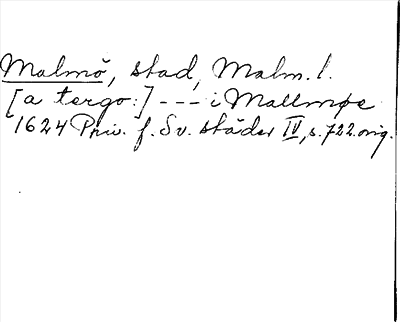 Malmö, stad, Malm. l.
[a tergo:] --- i Mallmøe
1624 Priv. f. Sv. städer IV, s. 722. orig.